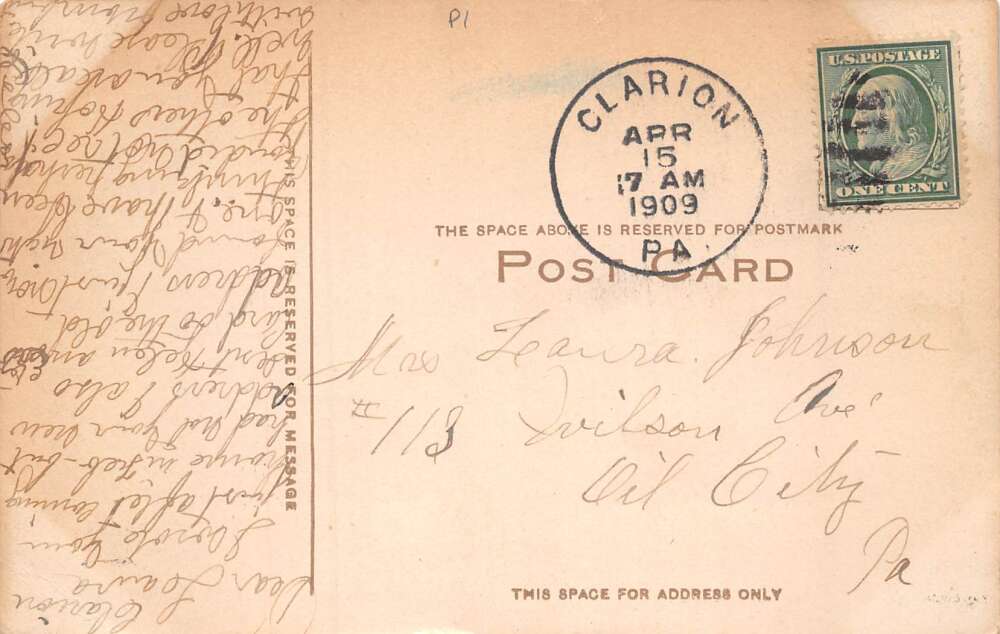 P1
CLARION
APR
15
7 AM
1909
PA
U.S. POSTAGE
ONE CENT
THE SPACE ABOVE IS RESERVED FOR POSTMARK
POST CARD
Mrs Leaura Johnson
#113 Wilson Ave
Oil City
Pa
THIS SPACE FOR ADDRESS ONLY
THIS SPACE IS RESERVED FOR MESSAGE
Clarion
Dear Leaura
I wrote you
just after coming
home in Feb- but
had not your new
address I also
sent Helen and
card to the old
address I just now
found your
one. I have been
thinking perhaps
you did not rec
the others hoping
that you are all
well. Please write
with love from